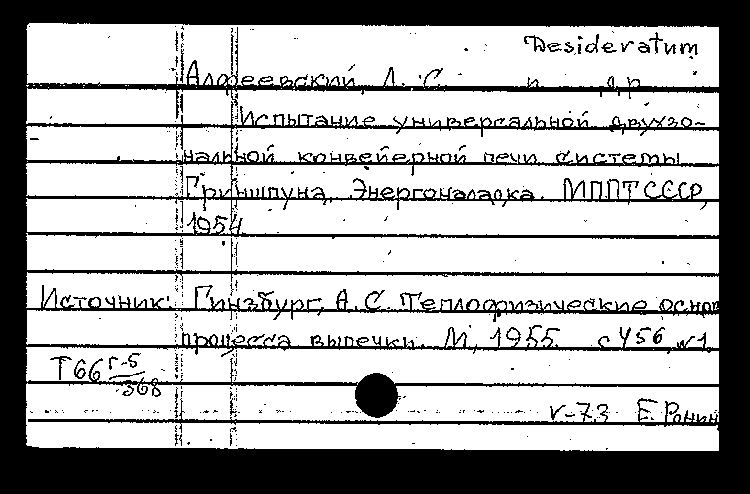 Desideratum
Алфеевский, Л. С. и др.
Испытание универсальной двухзо-
нальной конвейерной печи системы
Гриншпуна. Энергоналадка. МППТ СССР,
1954
Источник: Гинзбург, А.С. Теплофизические основ
процесса выпечки. М., 1955. с 456, №1.
Т66 Г-5/368
V-73 Е. Ронин